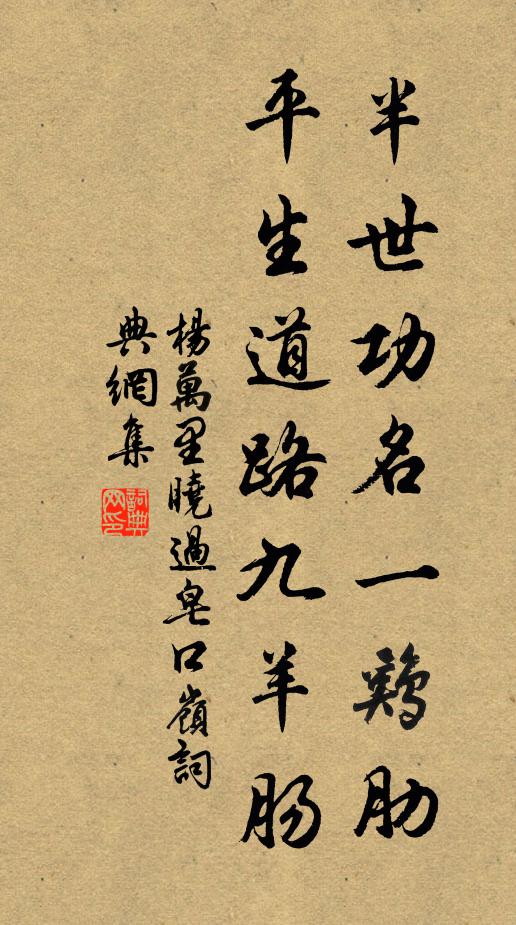 半世功名一鷄肋
平生道路九羊肠
楊萬里曉過皂口嶺詞
典網集
詞典
网印